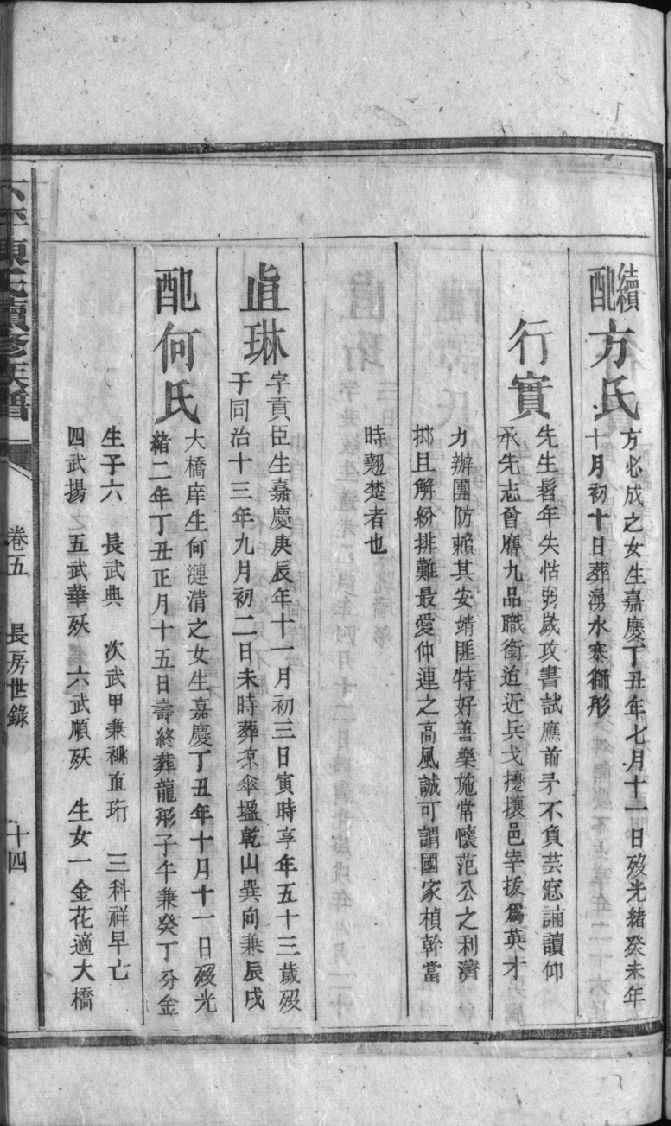 續配方氏
方必成之女生嘉慶丁丑年七月十一日歿光緒癸未年
十月初十日葬湧水寨獅形
行實
先生髫年失怙男歲攻書試應前矛不負芸窓誦讀仰
承先志曾膺九品職銜迨近兵戈擾攘邑宰拔爲英才
力辦團防賴其安靖匪特好善樂施常懷范公之利濟
抑且解紛排難最愛仲連之高風誠可謂國家楨幹當
時翹楚者也
直琳
字貢臣生嘉慶庚辰年十一月初三日寅時享年五十三歲歿
于同治十三年九月初二日未時葬凉傘塭乾山巽向兼辰戌
配何氏
大橋庠生何漣清之女生嘉慶丁丑年十月十一日歿光
緒二年丁丑正月十五日壽終葬龍形子午兼癸丁分金
生子六 長武典 次武甲兼祧直珩 三科祥早亡
四武揚 五武華殀 六武順殀 生女一金花適大橋
陳氏續修族譜
卷五 長房世錄 十四